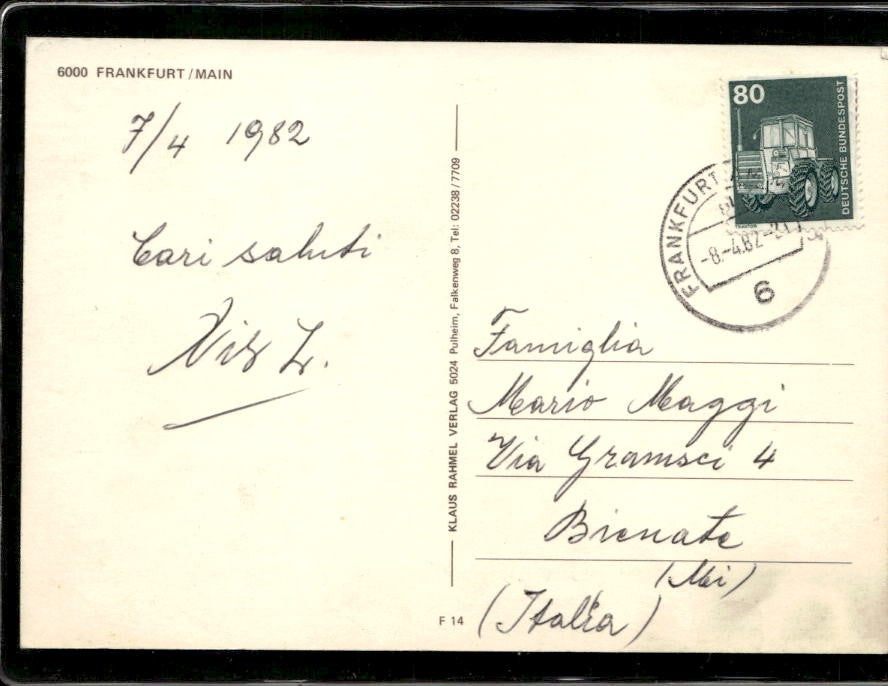 6000 FRANKFURT/MAIN
7/4 1982
Cari saluti
KLAUS RAHMEL VERLAG 5024 Pulheim, Falkenweg 8, Tel: 02238/7709
F 14
80
DEUTSCHE BUNDESPOST
FRANKFURT
-8.-4.82-
6
Famiglia
Mario Maggi
Via Gramsci 4
Bienate
(Mi)
(Italia)